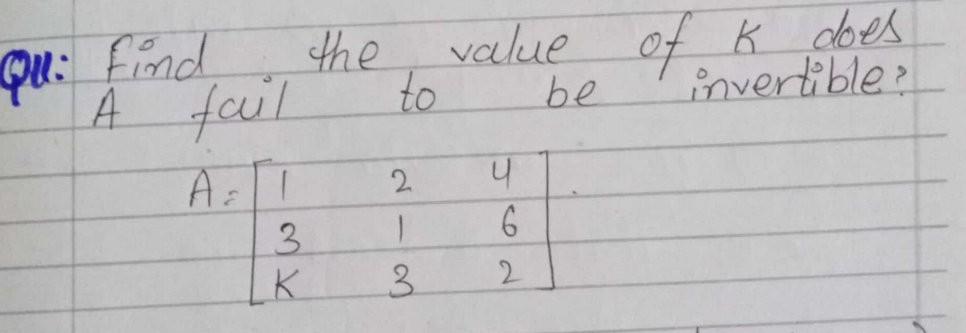 QU: Find the value of K does
A fail to be invertible?
A = [1 2 4]
3 1 6
K 3 2